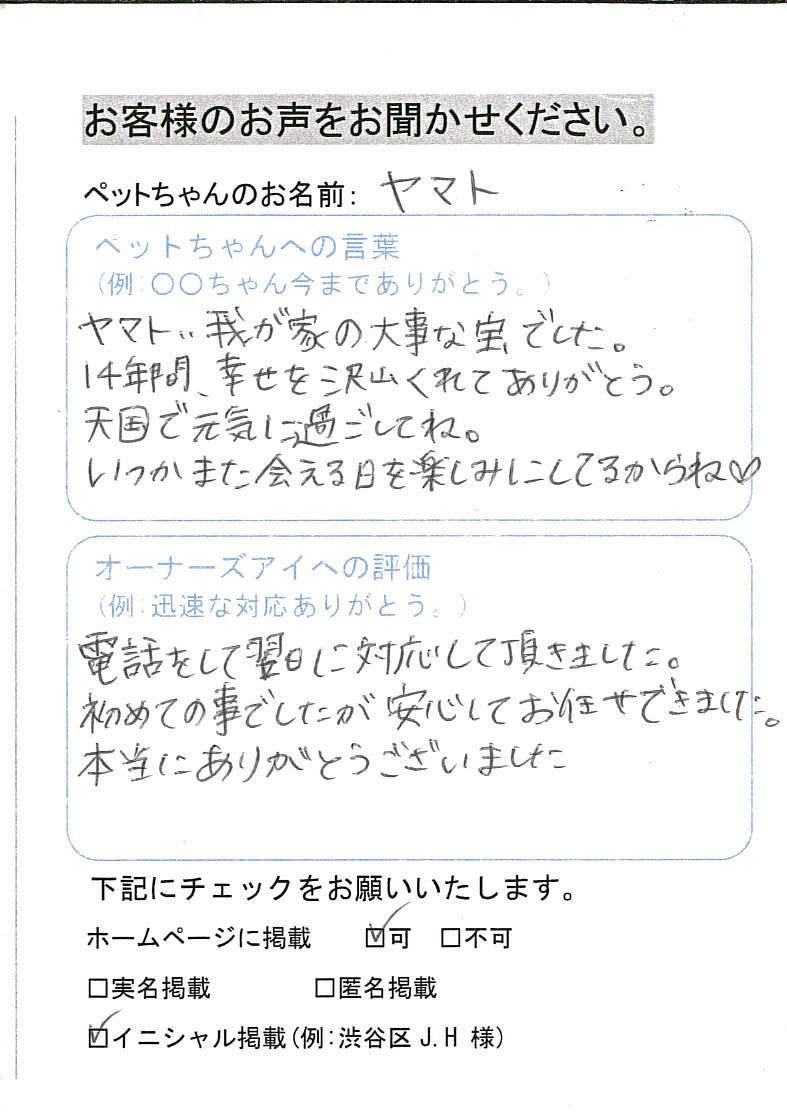 お客様のお声をお聞かせください。
ペットちゃんのお名前: ヤマト
ペットちゃんへの言葉
(例:〇〇ちゃん今までありがとう。)
ヤマト、、我が家の大事な宝でした。
14年間、幸せを沢山くれてありがとう。
天国で元気に過ごしてね。
いつかまた会える日を楽しみにしてるからね♡
オーナーズアイへの評価
(例:迅速な対応ありがとう。)
電話をして翌日に対応して頂きました。
初めての事でしたが安心してお任せできました。
本当にありがとうございました
下記にチェックをお願いいたします。
ホームページに掲載 ☑可 □不可
□実名掲載 □匿名掲載
☑イニシャル掲載(例:渋谷区 J.H 様)